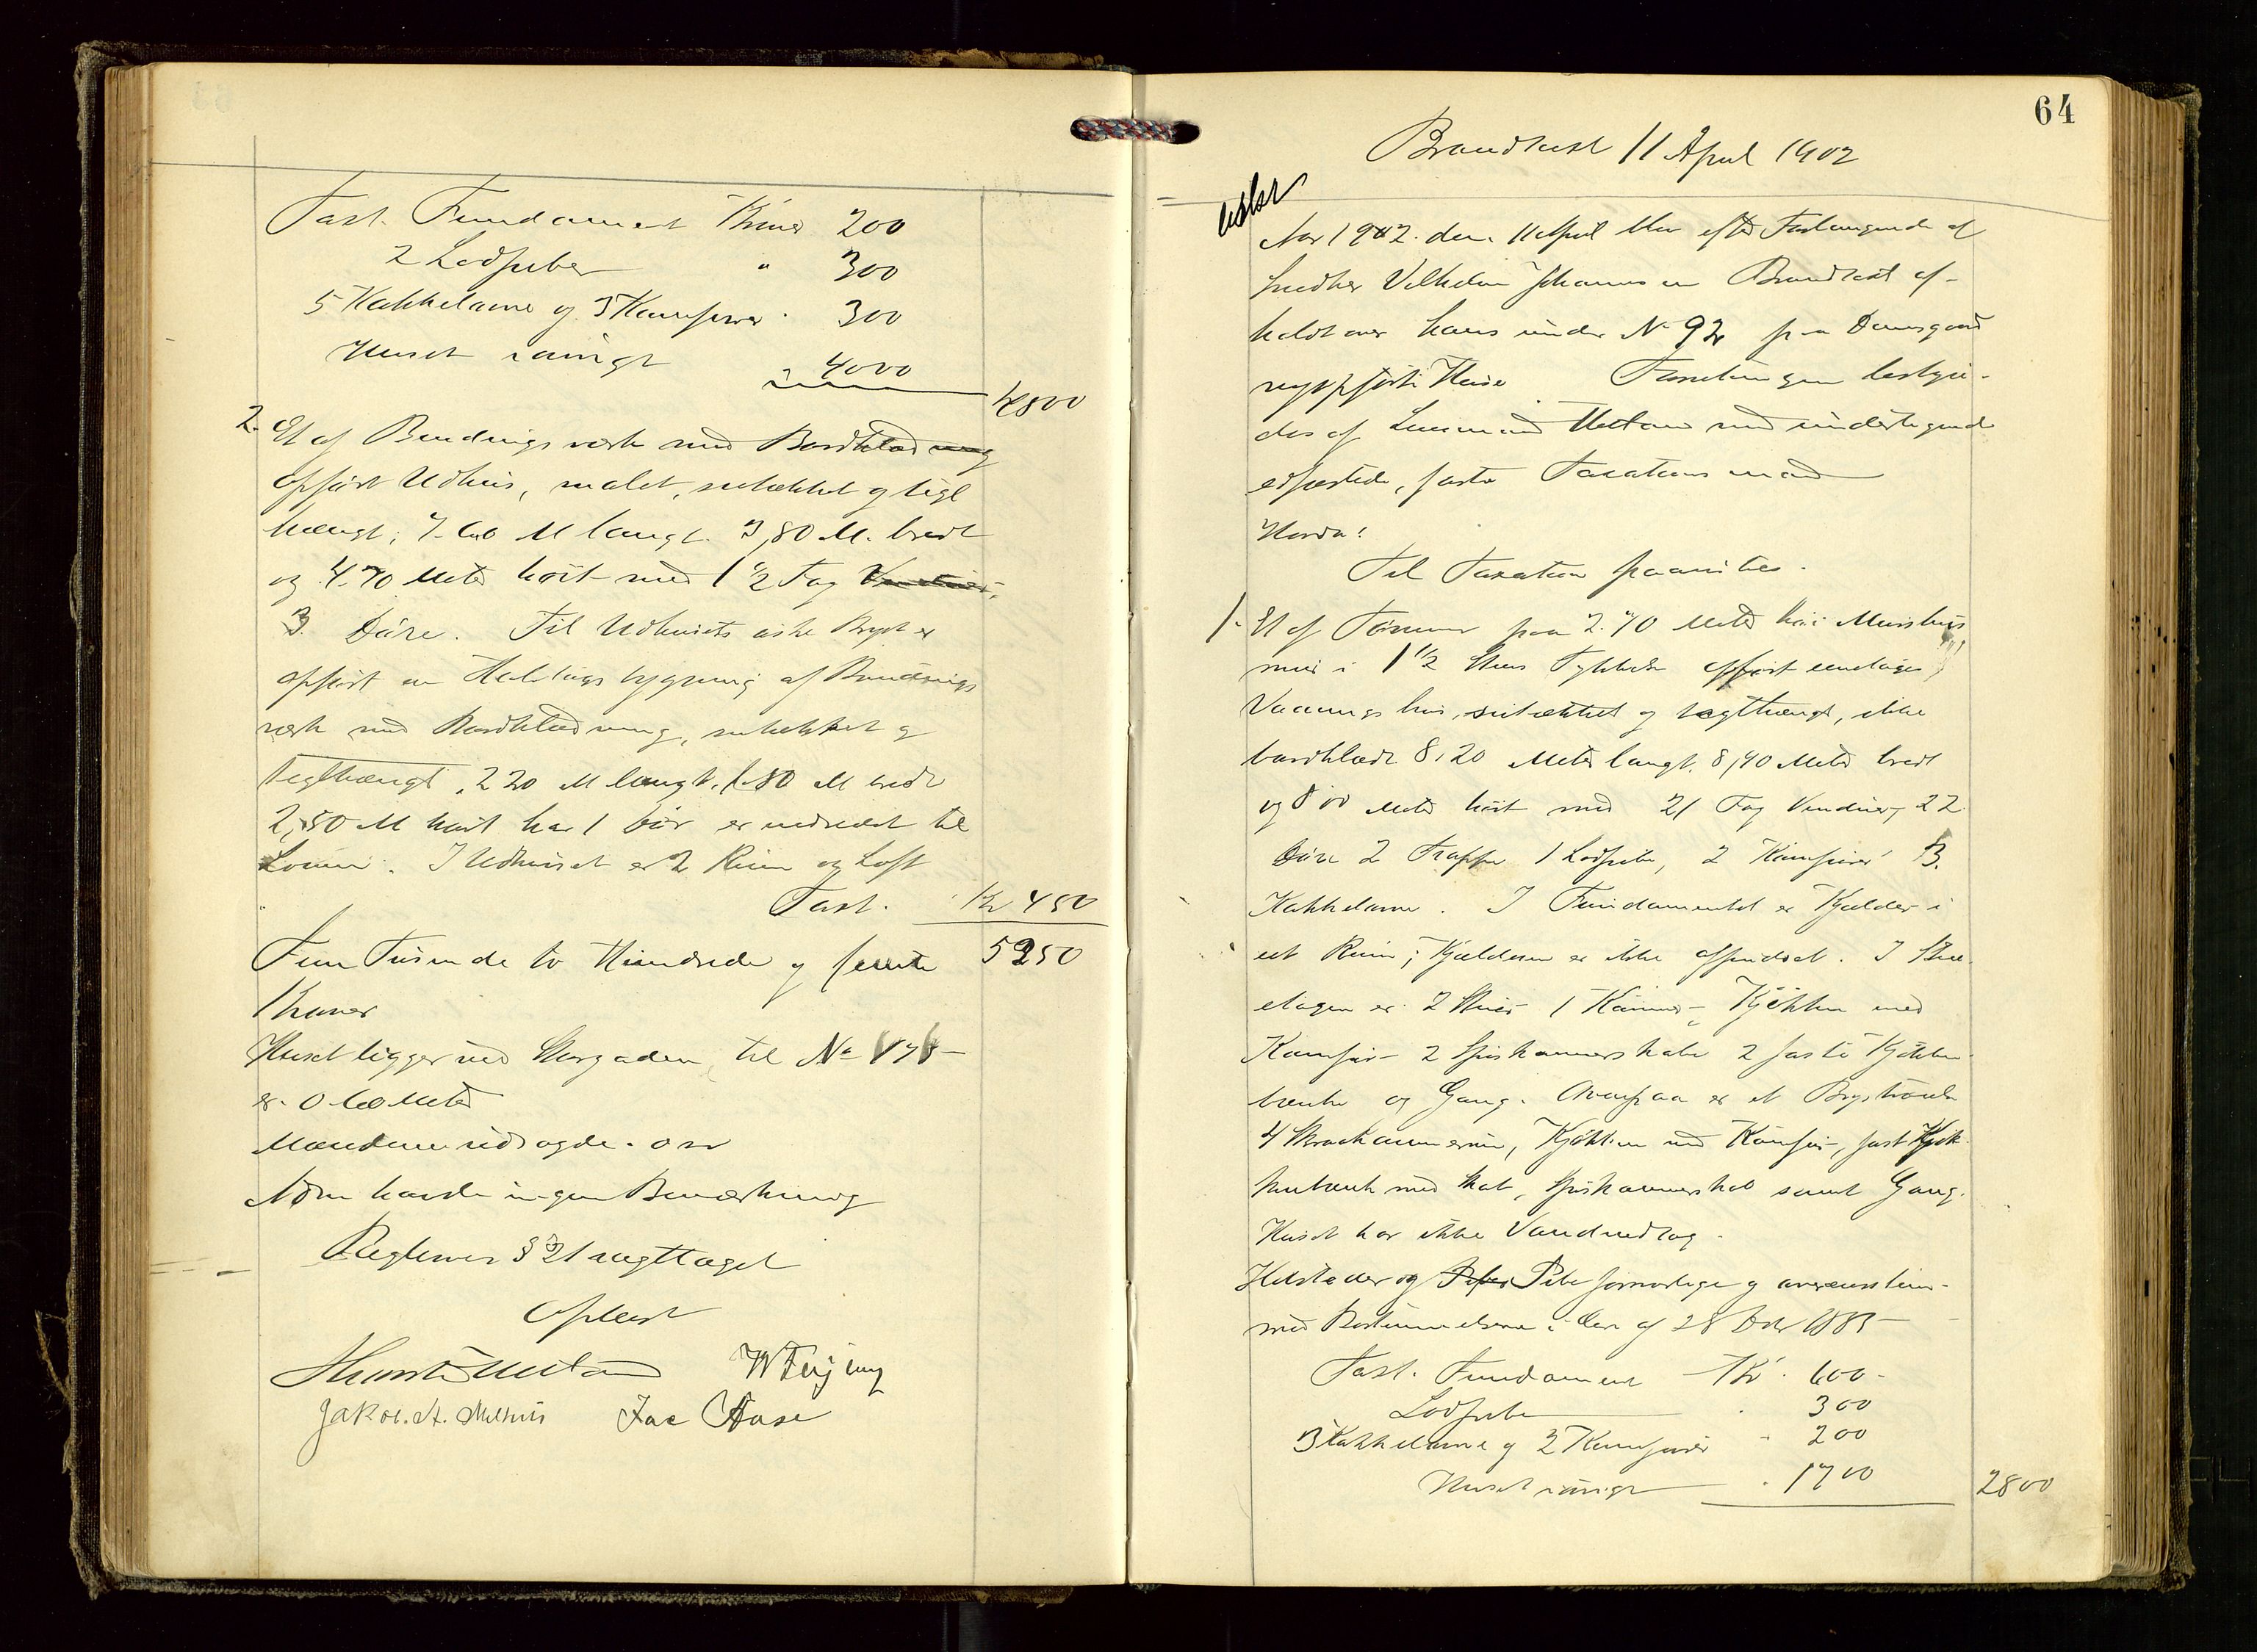 Taxt. Fundament Kroner 200
2 Lodpiber " 300
5 Kakkelovne og 3 Komfurer " 300
Huset iøvrigt 4000
4800
2. Et af Bindingsverk med Bordklædning
opført Udhus, malet, sutækket og tegl
hængt; 7.60 M langt. 3,80 M. bredt
og 4.70 Meter höit med 1 1/2 Fag
3. Döre. Til Udhusets östre Bryst er
opfört en Halvtagsbygning af Bindings
værk med Bordklædning, sutækket og
teglhængt, 2 20 M langt. 1.80 M bredt
2,50 M höit har 1 Dör er indredet til
I Udhuset er 2 Rum og Loft
Taxt. Kr 450
Fem Tusinde to Hundrede og femti 5250
Kroner
Huset ligger ved Storgaden, til No 175
er 0 60 Meter
Mændene udsagde. o s v
Ndm havde ingen Bemærkning
Reglem § 21 iagttaget
Oplæst
W Feyling
Jakob. A. Melhus Jac Aase
64
Brandtaxt 11 April 1902
Aar 1902. den 11 April blev efter Forlangende af
Snedker Vilhelm Johannesen Brandtaxt af-
holdt over hans under No 92 paa Damsgaard
nyopførte Huse Forretningen bestyre-
des af Lensmand Meeland med undertegnede
edfæstede, faste Taxationsmænd
Hvorda:
Til Taxation paavistes.
1. Et af Tømmer paa 2.70 Meter höi Murstens
mur i 1 1/2 Stens Tykkelse opført eenetages
Vaaningshus, sutækket og teglhængt, ikke
bordklædt 8,20 Meter langt. 8,40 Meter bredt
og 8 00 Meter höit med 21 Fag Vinduer, 22
Döre 2 Trapper 1 Lodpibe, 2 Komfurer 3.
Kakkelovne. I Fundamentet er Kjelder i
et Rum; Kjelderen er ikke afpudset. I Stue
etagen er 2 Stuer 1 Kammer, Kjökken med
Komfur 2 Spiskammerskabe 2 faste Kjökken
bænke og Gang. Ovenpaa er et
4 Skraakammerser, Kjökken med Komfur, fast Kjök-
kenbænk med Skab, Spiskammerskab samt Gang.
Huset har ikke Vandindlæg.
Ildsteder og Pibe forsvarlige og overensstem-
med Bestemmelserne i Lov af 28 1885
Taxt. Fundament Kr. 600-
Lodpibe " 300
3 Kakkelovne og 2 Komfurer " 200
Huset iøvrigt " 1700
2800